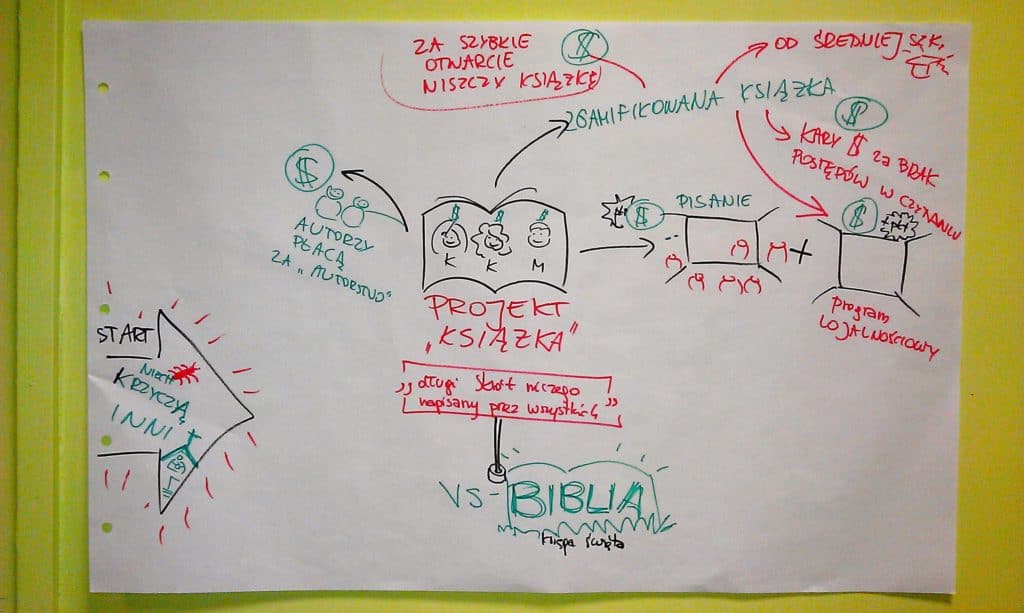 ZA SZYBKIE
OTWARCIE
NISZCZY KSIĄŻKĘ
$
OD ŚREDNIEJ SZK,
ZGAMIFIKOWANA KSIĄŻKA
$
KARY $ za BRAK
POSTĘPÓW W CZYTANIU
$
AUTORZY
PŁACĄ
ZA „AUTORSTWO"
$ $ $
K K M
PROJEKT
„KSIĄŻKA"
$
PISANIE
+
$
program
LOJALNOŚCIOWY
START
NIECH
KRZYCZĄ
INNI
„długi skrót niczego
napisany przez wszystkich"
VS- BIBLIA
święta